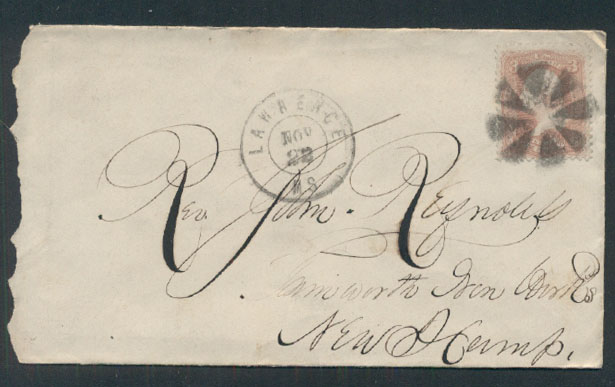 LAWRENCE
NOV
22
Rev John Reynolds
Tamworth Iron Works
New Hamp.